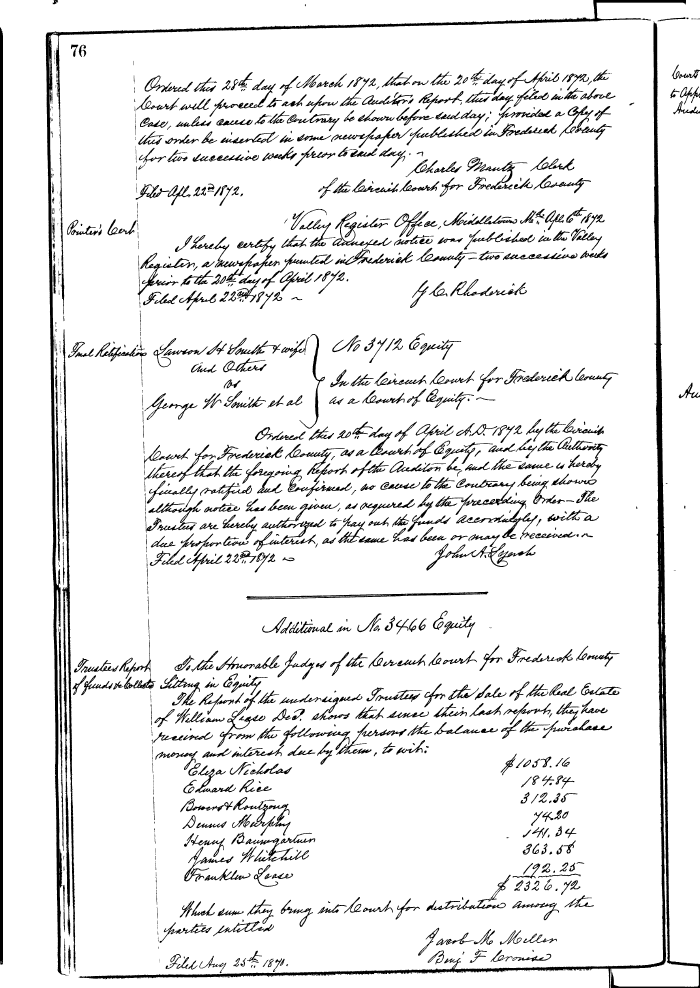 76
Ordered this 28th day of March 1872, that on the 20th day of April 1872, the
Court will proceed to act upon the Auditor's Report, this day filed in the above
Case, unless cause to the Contrary be shown before said day; provided a Copy of
this order be inserted in some newspaper published in Frederick County
for two successive weeks prior to said day.
Charles Mantz Clerk
Filed Apl. 22nd 1872. of the Circuit Court for Frederick County
Printer's Cert Valley Register Office, Middletown Md. Apl. 6th 1872
I hereby certify that the annexed notice was published in the Valley
Register, a newspaper printed in Frederick County – two successive weeks
prior to the 20th day of April 1872.
Filed April 22nd 1872 ~ G C. Rhoderick
Final Ratification Lawson H Smith & wife No 3712 Equity
and Others
vs In the Circuit Court for Frederick County
George W Smith et al as a Court of Equity. ~
Ordered this 20th day of April A.D. 1872 by the Circuit
Court for Frederick County, as a Court of Equity, and by the Authority
thereof that the foregoing Report of the Auditor be, and the same is hereby
finally ratified and Confirmed, no cause to the Contrary being shown
although notice has been given, as required by the preceeding Order – The
Trustees are hereby authorized to pay out the funds accordingly, with a
due proportion of interest, as the same has been or may be received. ~
Filed April 22nd 1872 ~ John A. Lynch
Additional in No. 3466 Equity
Trustees Report To the Honorable Judges of the Circuit Court for Frederick County
of funds &c Collected Sitting in Equity
The Report of the undersigned Trustees for the sale of the Real Estate
of William Lease Decd. shows that since their last report, they have
received from the following persons the balance of the purchase
money and interest due by them, to wit:
Eliza Nicholas $1058.16
Edward Rice 184.84
Bowers & Routzong 312.35
Dennis Murphy 74.20
Henry Baumgartner 141.34
James Whitehill 363.58
Franklin Lease 192.25
$2326.72
Which sum they bring into Court for distribution among the
parties entitled
Jacob M Miller
Filed Aug 25th 1871. Benj F Cronise
Court
to App